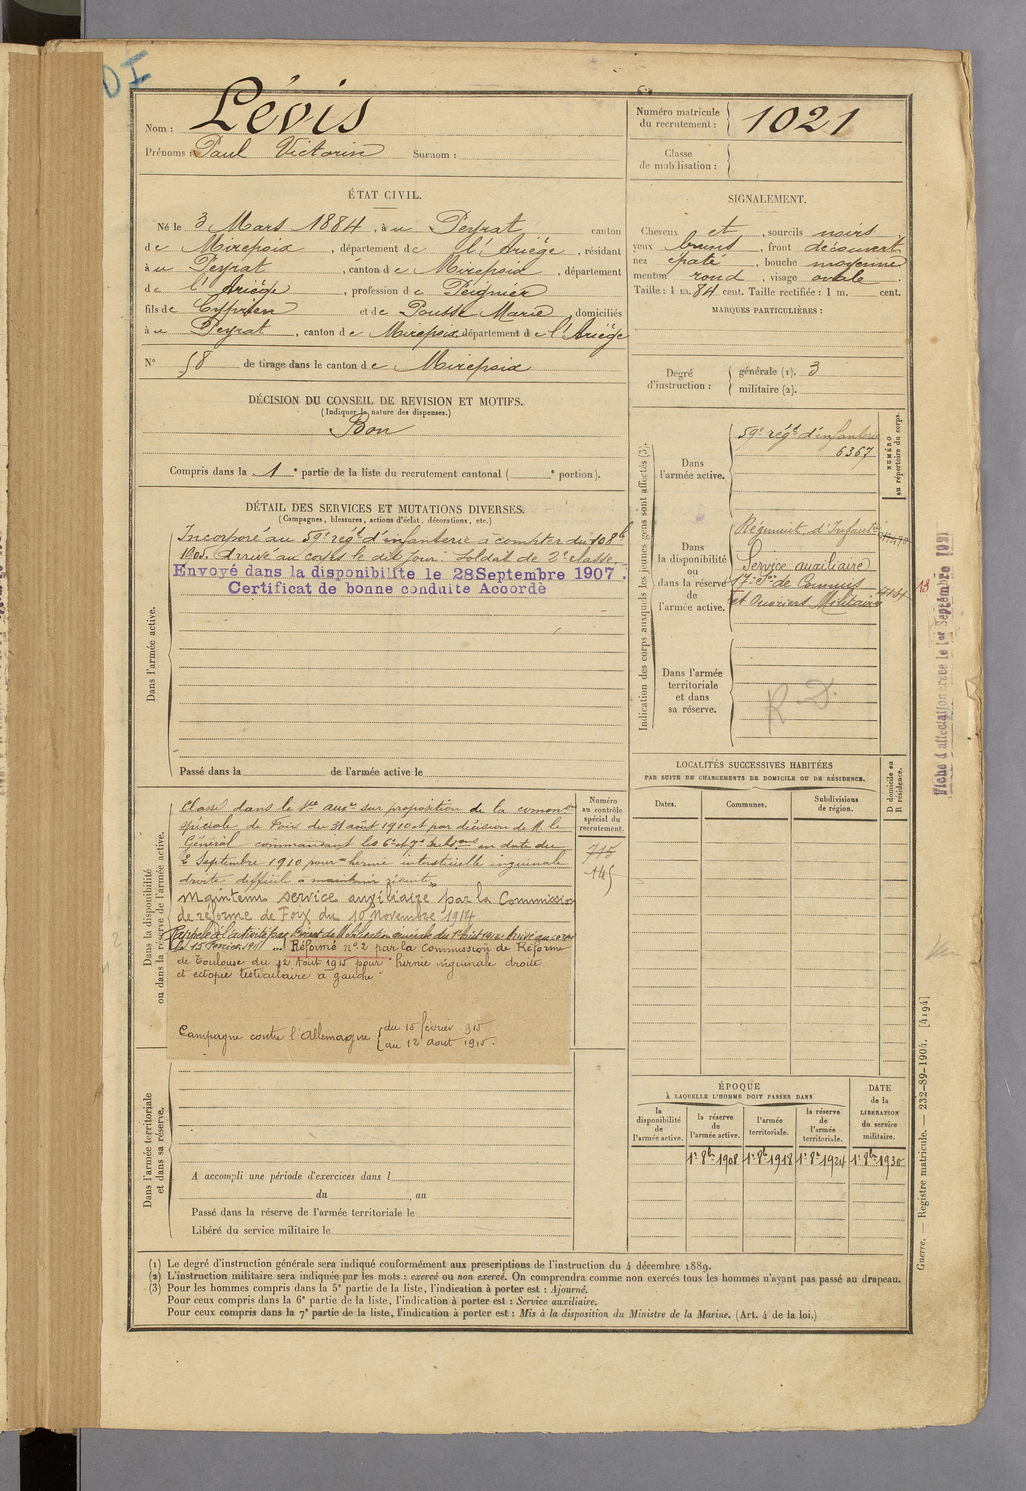 DI
Nom : Lévis
Prénoms : Paul Victorin Surnom :
Numéro matricule du recrutement : 1021
Classe de mobilisation :
ÉTAT CIVIL.
Né le 3 Mars 1884, à u Peyrat canton
de Mirepoix, département de l'Ariège, résidant
à u Peyrat, canton de Mirepoix, département
de l'Ariège, profession de Peignier
fils de Cyprien et de Pousse Marie, domiciliés
à u Peyrat, canton de Mirepoix département de l'Ariège
N° 58 de tirage dans le canton de Mirepoix
SIGNALEMENT.
Cheveux et, sourcils noirs
yeux bruns, front découvert
nez épaté, bouche moyenne
menton rond, visage ovale.
Taille : 1 m. 84 cent. Taille rectifiée : 1 m. cent.
MARQUES PARTICULIÈRES :
Degré d'instruction :
générale (1). 3
militaire (2).
DÉCISION DU CONSEIL DE REVISION ET MOTIFS.
(Indiquer la nature des dispenses.)
Bon
Compris dans la 1e partie de la liste du recrutement cantonal ( e portion).
DÉTAIL DES SERVICES ET MUTATIONS DIVERSES.
(Campagnes, blessures, actions d'éclat, décorations, etc.)
Dans l'armée active.
Incorporé au 59e régt d'infanterie à compter du 10 8bre
1905. Arrivé au corps le dit jour. Soldat de 2e classe.
Envoyé dans la disponibilite le 28 Septembre 1907.
Certificat de bonne conduite Acoordé
Passé dans la de l'armée active le
Indication des corps auxquels les jeunes gens sont affectés (3).
NUMÉRO au répertoire du corps.
Dans l'armée active.
59e régt d'infanterie
6367
Dans la disponibilité ou dans la réserve de l'armée active.
Régiment d'Infant
Service auxiliaire
17e Son de Commis
et Ouvriers Militaires
13
Dans l'armée territoriale et dans sa réserve.
R D.
Fiche d'affectation créée le 1er Septembre 1921
Dans la disponibilité ou dans la réserve de l'armée active.
Numéro au contrôle spécial du recrutement.
715
145
Classé dans le sce auxre sur proposition de la comon
spéciale de Foix du 31 août 1910 et par décision de M. le
Général commandant les 6e et 7e Subdons en date du
2 Septembre 1910 pour "hernie interstitielle inguinale
droite difficile à maintenir réduite"
Maintenu service auxiliaire par la Commission
de réforme de Foix du 10 Novembre 1914
Rappelé à l'activité par Décret de Mobilisation générale du 1er Août 1914 Arrivé au corps
le 15 Février 1915 ... Réformé n° 2 par la Commission de Réforme
de Toulouse du 12 Aout 1915 pour "hernie inguinale droite
et ectopie testiculaire à gauche"
Campagne contre l'Allemagne { du 15 février 915
au 12 aout 1915.
LOCALITÉS SUCCESSIVES HABITÉES
PAR SUITE DE CHANGEMENTS DE DOMICILE OU DE RÉSIDENCE.
Dates.
Communes.
Subdivisions de région.
D domicile ou R résidence.
ÉPOQUE
À LAQUELLE L'HOMME DOIT PASSER DANS
la disponibilité de l'armée active.
la réserve de l'armée active.
l'armée territoriale.
la réserve de l'armée territoriale.
DATE de la LIBÉRATION du service militaire.
1er 8bre 1908
1er 8bre 1918
1er 8bre 1924
1er 8bre 1930
Dans l'armée territoriale et dans sa réserve.
A accompli une période d'exercices dans l
du au
Passé dans la réserve de l'armée territoriale le
Libéré du service militaire le
(1) Le degré d'instruction générale sera indiqué conformément aux prescriptions de l'instruction du 4 décembre 1889.
(2) L'instruction militaire sera indiquée par les mots : exercé ou non exercé. On comprendra comme non exercés tous les hommes n'ayant pas passé au drapeau.
(3) Pour les hommes compris dans la 5e partie de la liste, l'indication à porter est : Ajourné.
Pour ceux compris dans la 6e partie de la liste, l'indication à porter est : Service auxiliaire.
Pour ceux compris dans la 7e partie de la liste, l'indication à porter est : Mis à la disposition du Ministre de la Marine. (Art. 4 de la loi.)
Guerre. — Registre matricule. — 232-89-1904. [4194]